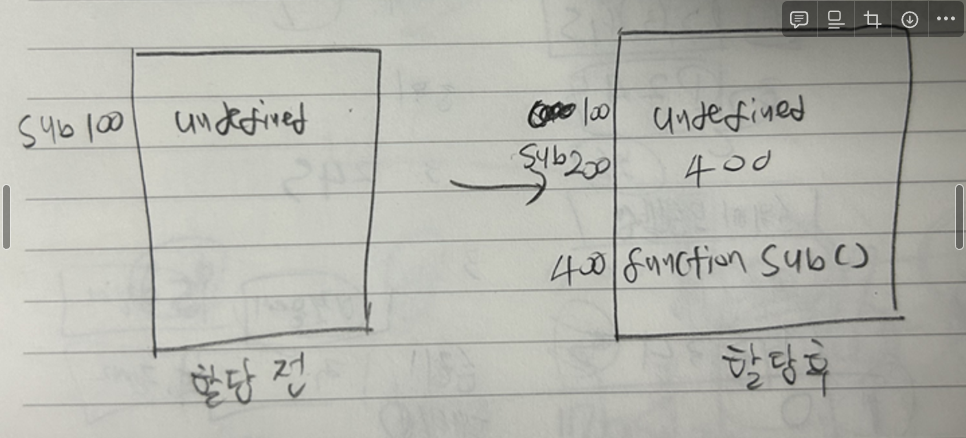 sub 100 undefined
100 undefined
sub 200 400
400 function sub()
할당 전
할당 후